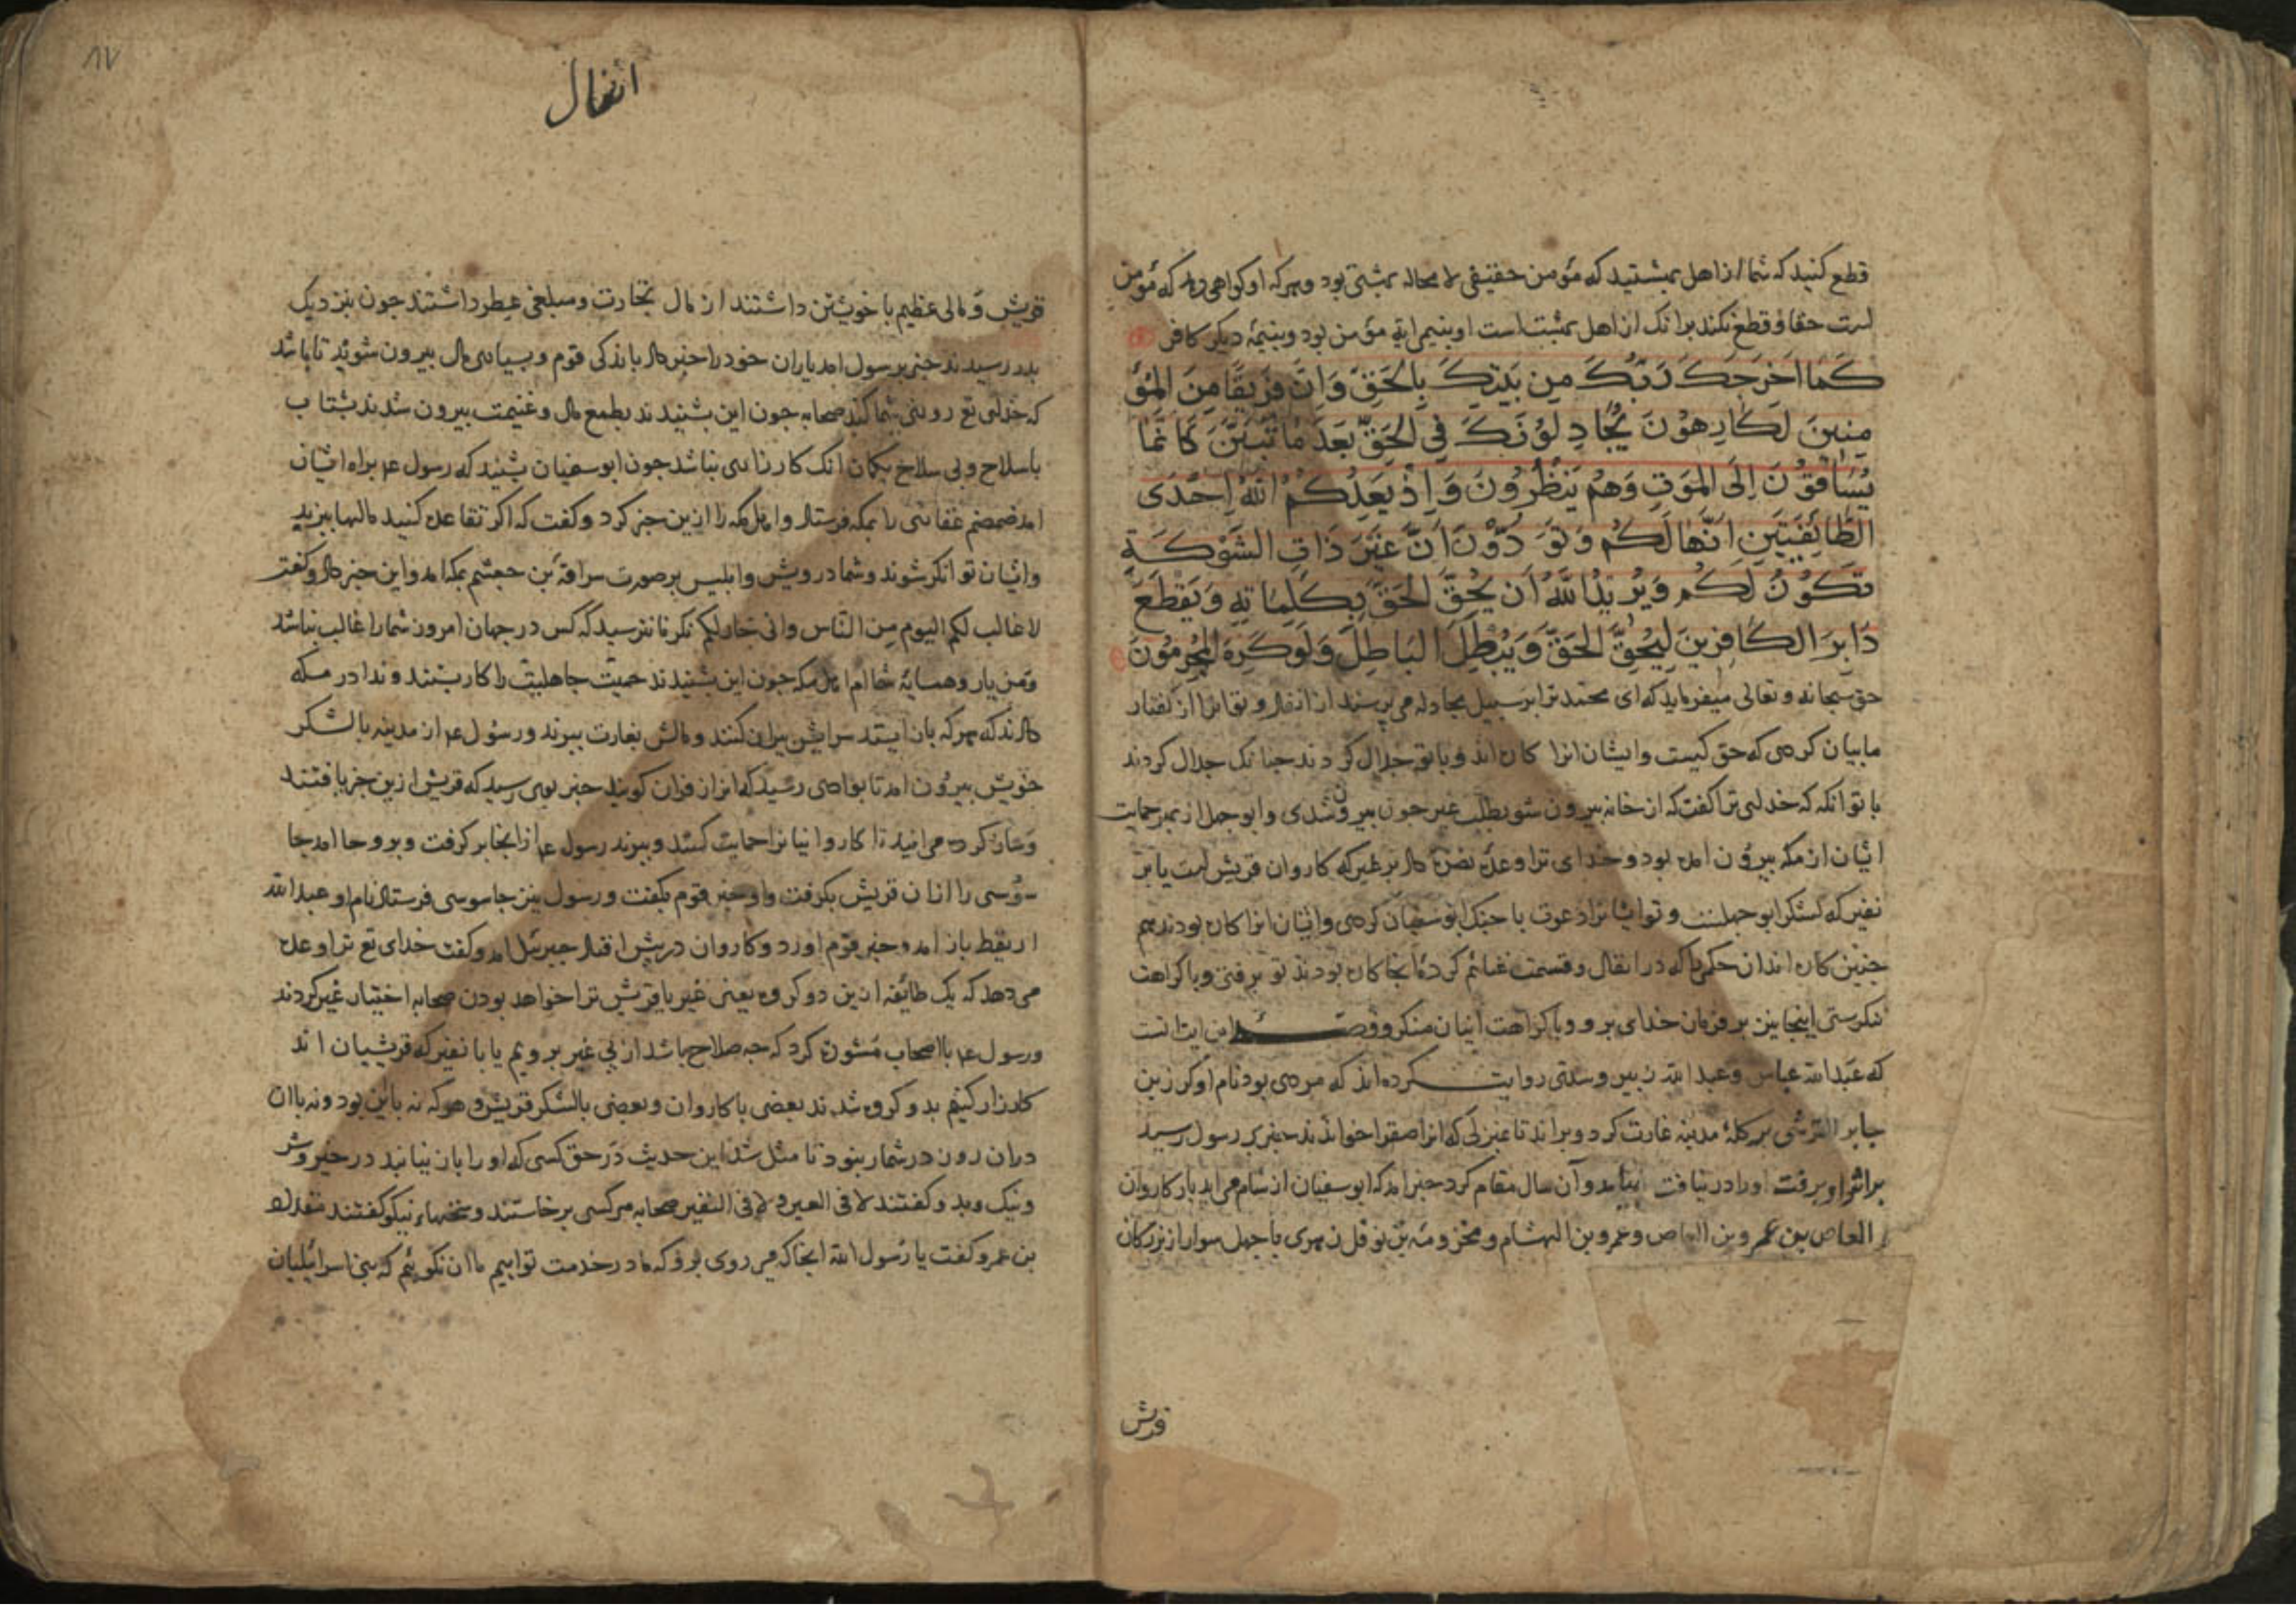 قطع کنید که شما از اهل بهشتید که مؤمن حقیقی لا محاله بهشتی بود و هر که او کواهی دهد که مؤمن
است حقا و قطع نکند برانک از اهل بهشت است او بنیم ایة مؤمن بود و بنیمۀ دیکر کافر
كَمَا اَخْرَجَكَ رَبُّكَ مِن بَيْتِكَ بِالْحَقِّ وَاِنَّ فَرِيقًا مِنَ الْمُؤْ
مِنِينَ لَكَارِهُوْنَ يُجَادِلُوْنَكَ فِي الْحَقِّ بَعْدَ مَا تَبَيَّنَ كَاَنَّمَا
يُسَاقُوْنَ اِلَى الْمَوْتِ وَهُمْ يَنْظُرُونَ وَاِذْ يَعِدُكُمُ اللّٰهُ اِحْدَى
الطَّائِفَتَيْنِ اَنَّهَا لَكُمْ وَتَوَدُّوْنَ اَنَّ غَيْرَ ذَاتِ الشَّوْكَةِ
تَكُوْنُ لَكُمْ وَيُرِيْدُ اللّٰهُ اَن يُحِقَّ الْحَقَّ بِكَلِمَاتِهِ وَيَقْطَعَ
دَابِرَ الكَافِرِينَ لِيُحِقَّ الْحَقَّ وَيُبْطِلَ البَاطِلَ وَلَوْ كَرِهَ الْمُجْرِمُوْنَ
حق سبحانه و تعالی میفرماید که ای محمد ترا بر سبیل مجادله می پرسند از انفال و تو انرا از کفتار
ما بیان کردی که حق کیست و ایشان انرا کاره اند و با تو جدال کردند جنانک جدال کردند
با تو انکه که خدای ترا کفت که از خانه بیرون شو بطلب عیر جون بیرون شدی و ابوجهل از بهر حمایت
ایشان از مکه بیرون امده بود و خدای ترا وعدۀ نصرة داد بر عیر که کاروان قریش است یا بر
نفیر که لشکر ابوجهلست و تو ایشانرا دعوت با جنک ابوسفیان کردی و ایشان انرا کاره بودند هم
جنین کاره اند ان حکمی را که در انفال و قسمت غنائم کردۀ انجا کاره بودند تو برفتی و با کراهت
ننکرستی اینجا نیز بر فرمان خدای برو و با کراهت ایشان منکر و قصۀ این ایة انست
که عبد الله عباس و عبد الله زبیر و سدی روایت کرده اند که مردی بود نام او کرز بن
جابر القرشی بر کلۀ مدینه غارت کرد و براند تا بمنزلی که انرا صفرا خوانند خبر بر رسول رسید
بر اثر او برفت او را در نیافت بیامد و آن سال مقام کرد خبر امد که ابوسفیان از شام می اید با کاروان
العاص بن عمرو بن العاص و عمرو بن الهشام و مخزومة بن نوفل زهری با چهل سوار از بزرکان
قریش
انفال
۱۷
قریش و مالی عظیم با خویشتن داشتند از مال تجارت و مبلغی عطر داشتند جون بنزدیک
بدر رسیدند خبر برسول امد یاران خود را خبر داد باندکی قوم و بسیاری مال بیرون شوید تا باشد
که خدای تع روزی شما کند صحابه جون این بشنیدند بطمع مال و غنیمت بیرون شدند بشتاب
با سلاح و بی سلاح بکمان انک کارزاری نباشد جون ابوسفیان بشنید که رسول عم براه ایشان
امد ضمضم غفاری را بمکه فرستاد و اهل مکه را ازین خبر کرد و کفت که اکر تقاعد کنید مالها ببرند
و ایشان توانکر شوند و شما درویش و ابلیس بر صورت سراقة بن جعشم بمکه امد و این خبر داد و کفت
لا غالب لکم الیوم من الناس وانی جار لکم نکر تا نترسید که کس در جهان امروز شما را غالب نباشد
و من یار و همسایۀ شماام اهل مکه جون این بشنیدند حمیت جاهلیت را کار بستند و ندا در مکه
دادند که هر که باز ایستد سرایش ویران کنند و مالش بغارت ببرند و رسول عم از مدینه با لشکر
خویش بیرون امد تا بوادی رسید که انرا ذفران کویند خبر بوی رسید که قریش ازین خبر یافتند
و غارت کرده می ایند تا کاروانیانرا حمایت کنند و ببرند رسول عم از انجا بر کرفت و بروحا امد جا
سوسی را ازان قریش بکرفت و او خبر قوم بکفت و رسول نیز جاسوسی فرستاد نام او عبد الله
اریقط باز امد و خبر قوم اورد و کاروان در پیش افتاد جبرئیل امد و کفت خدای تع ترا وعده
می دهد که یک طائفه ازین دو کروه یعنی عیر یا قریش ترا خواهد بودن صحابه اختیار عیر کردند
و رسول عم با اصحاب مشورة کرد که جه صلاح باشد از پی عیر برویم یا با نفیر که قرشیان اند
کارزار کنیم بدو کروه شدند بعضی با کاروان و بعضی با لشکر قریش و هر که نه باین بود و نه بان
دران روز در شمار نبود تا مثل شد این حدیث در حق کسی که او را باز نیابند در خیر و شر
و نیک و بد و کفتند لا فی العیر و لا فی النفیر صحابه هر کسی بر خاستند و سخنهاء نیکو کفتند مقداد
بن عمرو کفت یا رسول الله انجا که می روی برو که ما در خدمت توایم ما ان نکوئیم که بنی اسرائیلیان